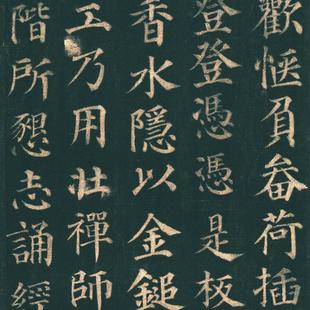 歡愜負畚荷插
登登憑憑是板
香水隱以金鎚
工乃用壯禪師
階所懇志誦經